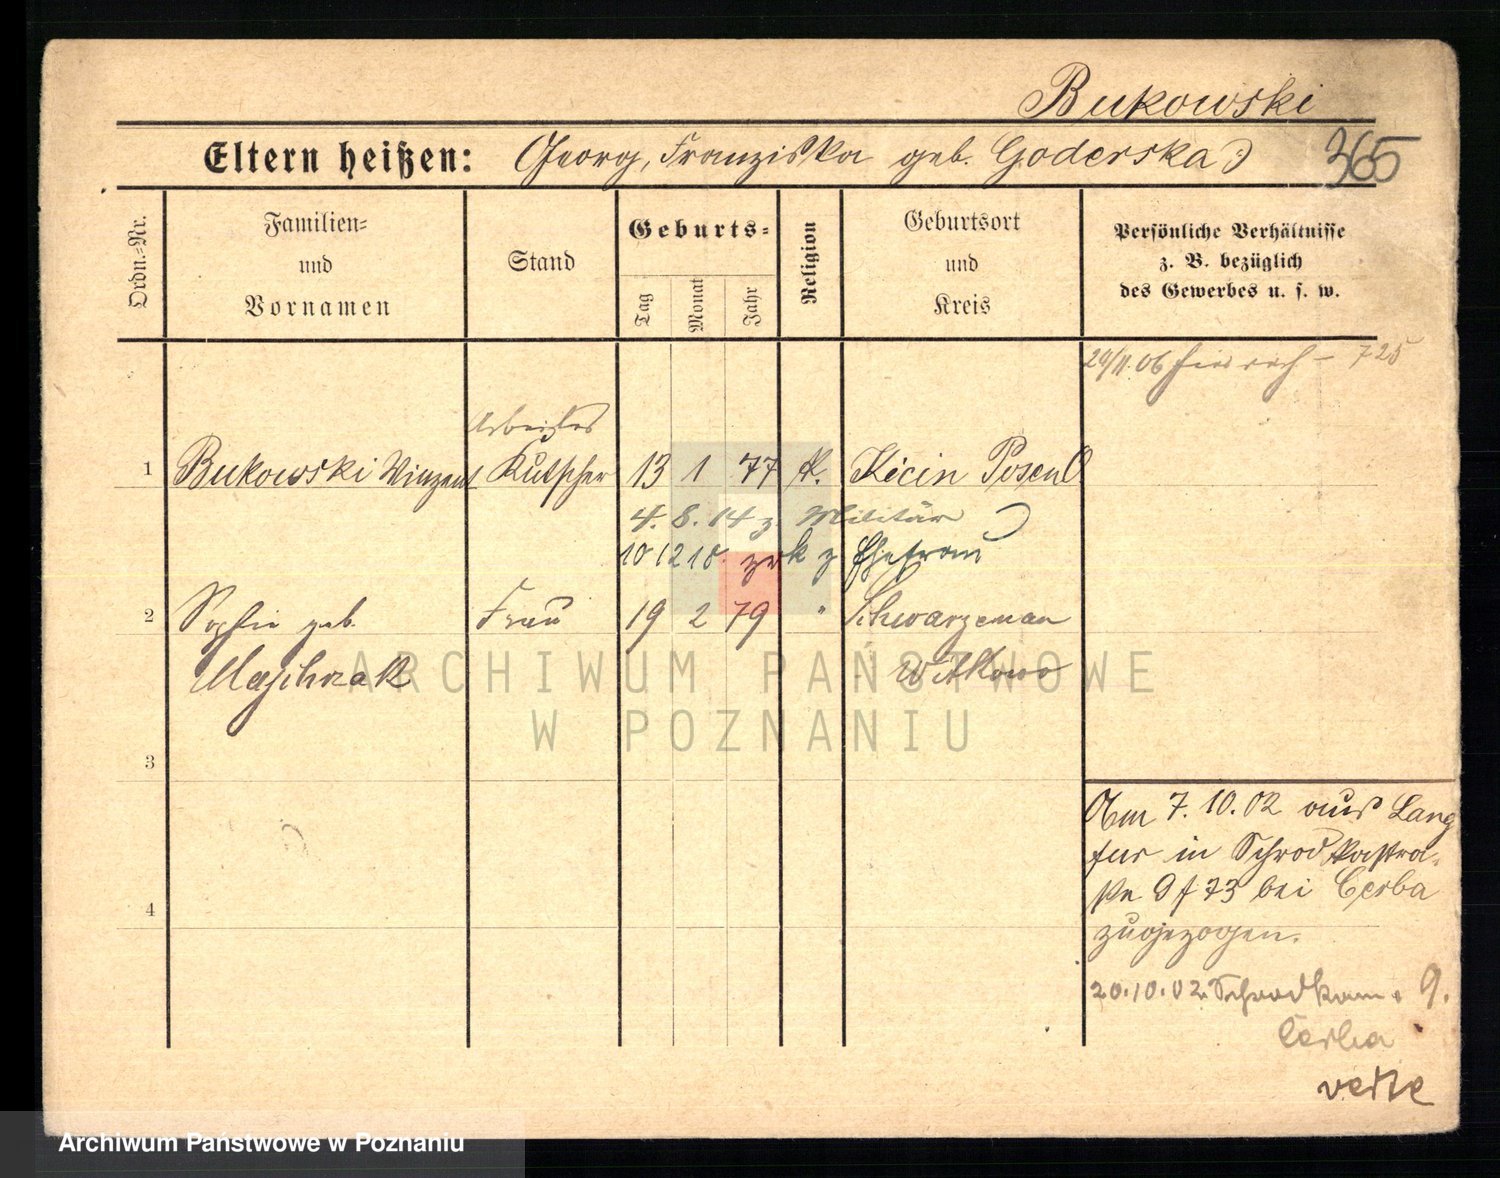 Bukowski
Eltern heißen: Georg, Franziska geb. Goderska
365
Ordn.-Nr.
Familien- und Vornamen
Stand
Geburts-
Tag
Monat
Jahr
Religion
Geburtsort und Kreis
Persönliche Verhältnisse
z. B. bezüglich
des Gewerbes u. s. w.
29/11.06 - 725
Arbeiter
1 Bukowski Winzent Kutscher 13 1 77 K. Kicin Posen O
4. 8. 14 z. Militär
10 12 18. zrk z Ehefrau
2 Sophie geb. Frau 19 2 79 " Schwarzenau
Majchrzak Witkowo
ARCHIWUM PAŃSTWOWE
W POZNANIU
3
4
Am 7. 10. 02 aus Lang
fur in Schrodkastra-
ße 9 f 73 bei Cerba
zugezogen.
20.10.02 Schrodkam. 9.
Cerba
verte
Archiwum Państwowe w Poznaniu